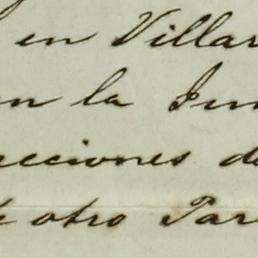 en Villar
en la Jun
cciones de
otro Par